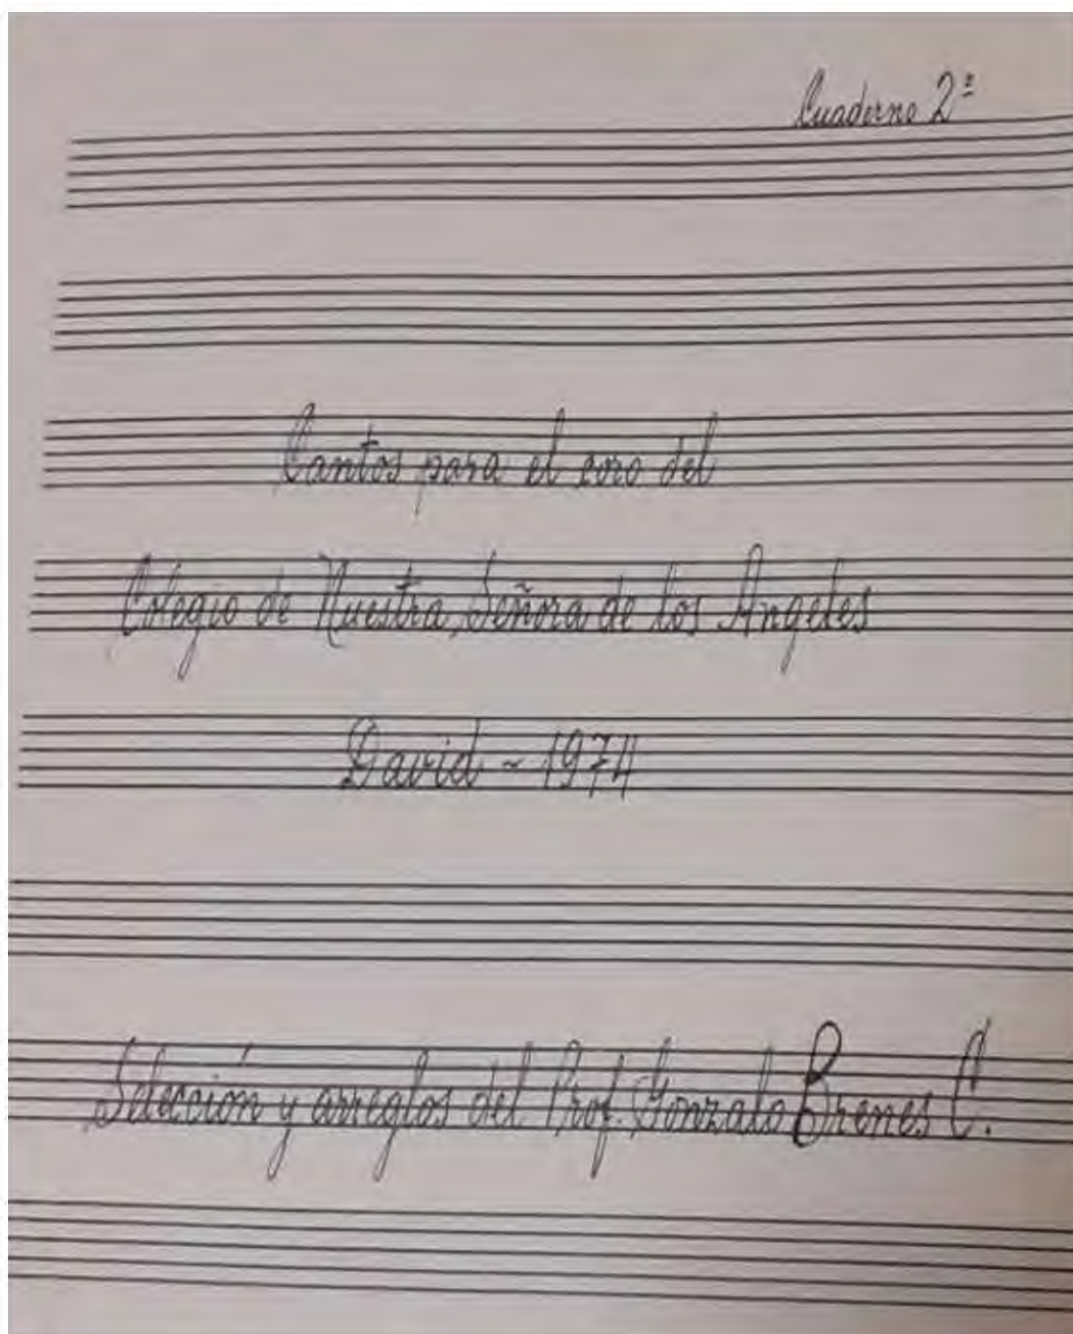 Cuaderno 2º
Cantos para el coro del
Colegio de Nuestra Señora de los Angeles
David ~ 1974
Selección y arreglos del Prof. Gonzalo Brenes C.